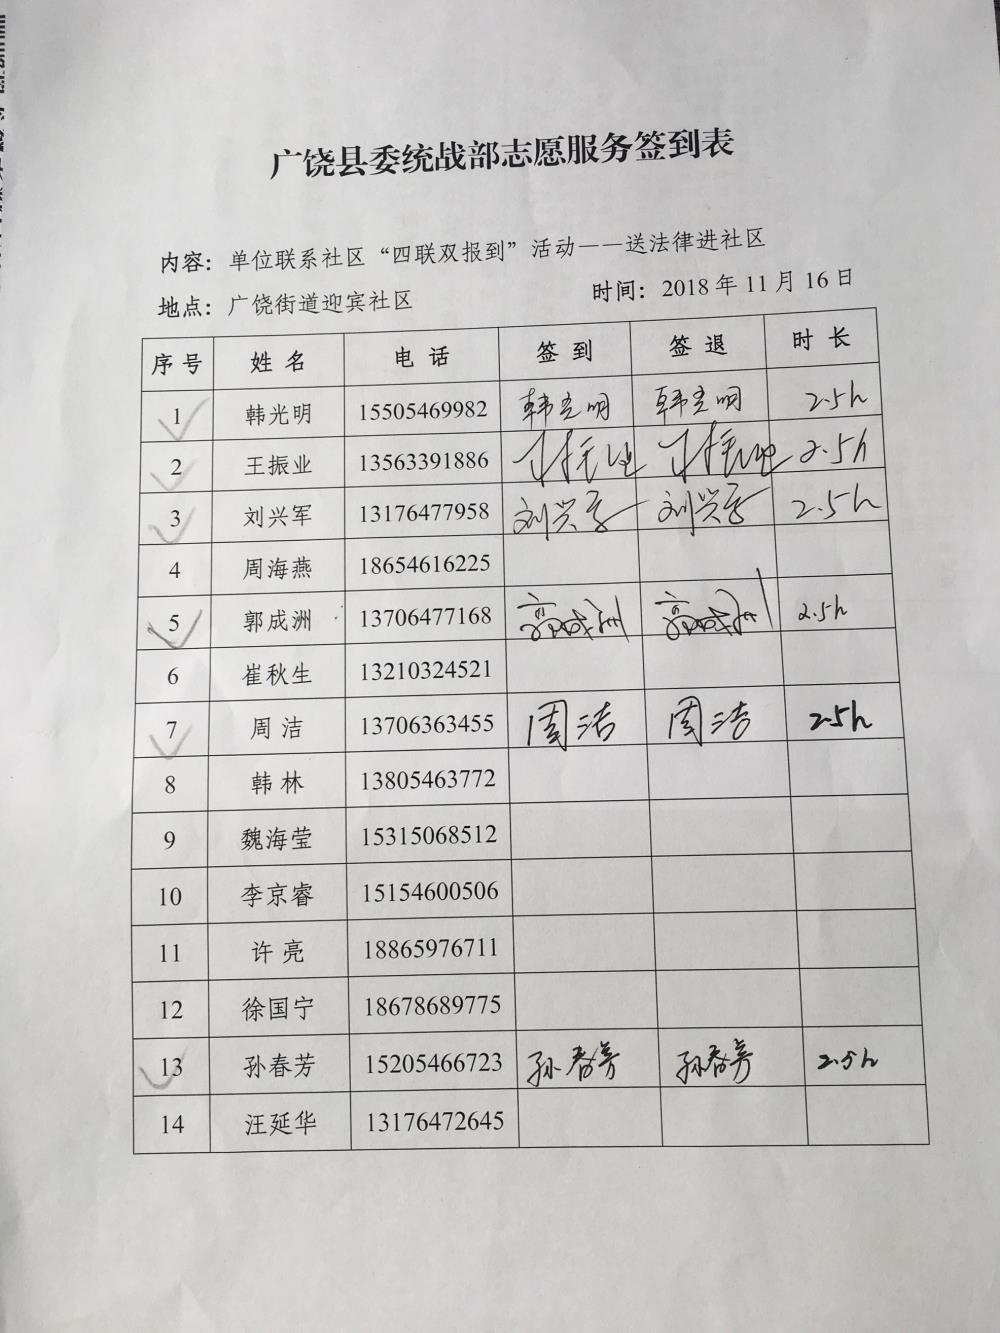 广饶县委统战部志愿服务签到表
内容：单位联系社区“四联双报到”活动——送法律进社区
地点：广饶街道迎宾社区 时间：2018年11月16日
序号 姓名 电话 签到 签退 时长
1 韩光明 15505469982 韩光明 韩光明 2.5h
2 王振业 13563391886 王振业 王振业 2.5h
3 刘兴军 13176477958 刘兴军 刘兴军 2.5h
4 周海燕 18654616225
5 郭成洲 13706477168 郭成洲 郭成洲 2.5h
6 崔秋生 13210324521
7 周洁 13706363455 周洁 周洁 2.5h
8 韩林 13805463772
9 魏海莹 15315068512
10 李京睿 15154600506
11 许亮 18865976711
12 徐国宁 18678689775
13 孙春芳 15205466723 孙春芳 孙春芳 2.5h
14 汪延华 13176472645